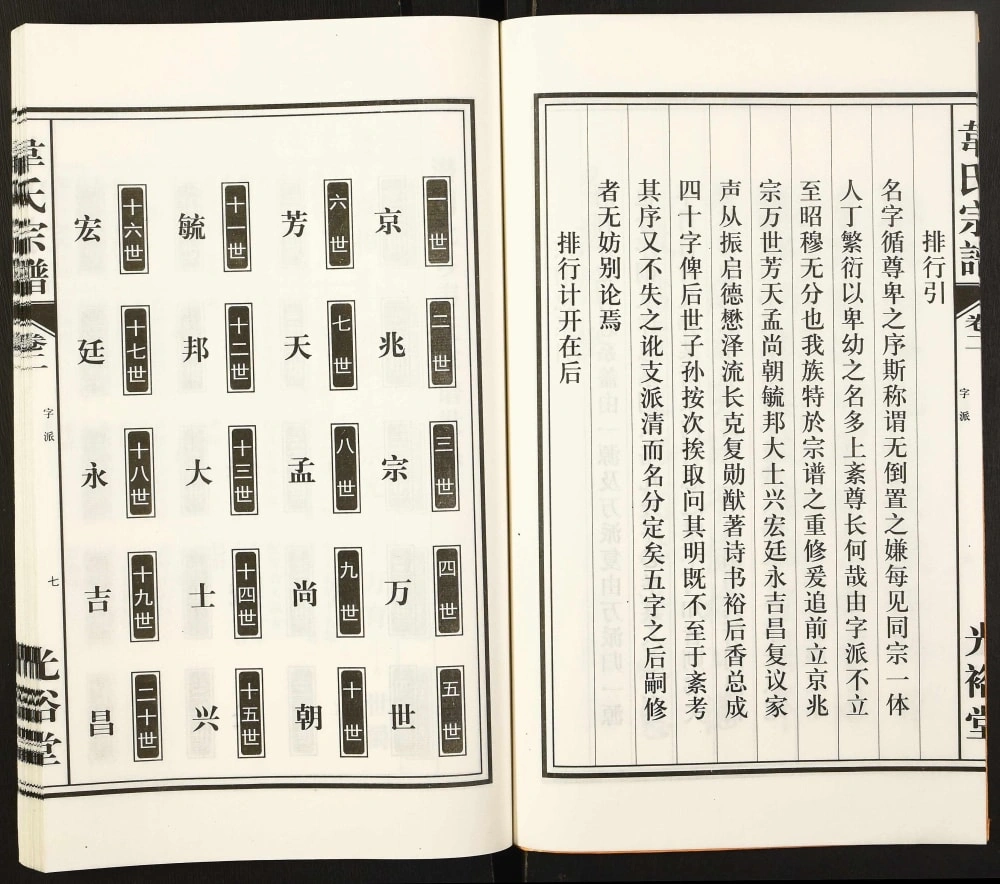 韋氏宗譜
卷二
字派
光裕堂
排行引
名字循尊卑之序斯称谓无倒置之嫌每见同宗一体
人丁繁衍以卑幼之名多上紊尊长何哉由字派不立
至昭穆无分也我族特於宗谱之重修爰追前立京兆
宗万世芳天孟尚朝毓邦大士兴宏廷永吉昌复议家
声从振启德懋泽流长克复勋猷著诗书裕后香总成
四十字俾后世子孙按次挨取问其明既不至于紊考
其序又不失之讹支派清而名分定矣五字之后嗣修
者无妨别论焉
排行计开在后
一世 京
二世 兆
三世 宗
四世 万
五世 世
六世 芳
七世 天
八世 孟
九世 尚
十世 朝
十一世 毓
十二世 邦
十三世 大
十四世 士
十五世 兴
十六世 宏
十七世 廷
十八世 永
十九世 吉
二十世 昌
韋氏宗譜
卷二
字派
七
光裕堂